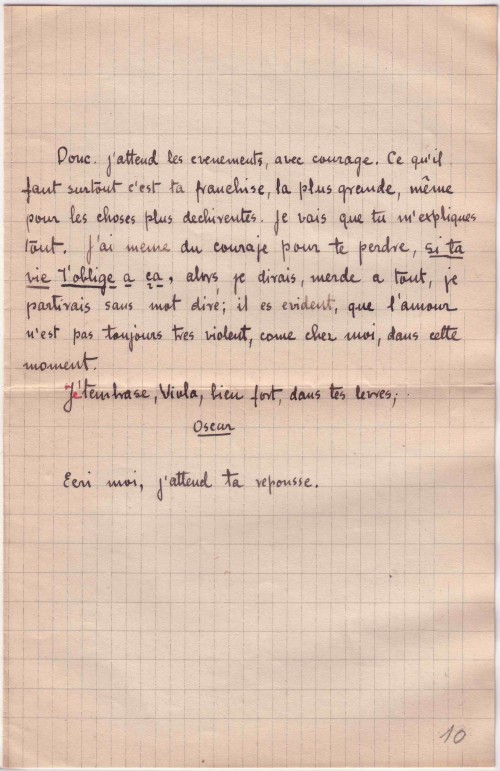 Donc. j'attend les evenements, avec courage. Ce qu'il
faut surtout c'est ta franchise, la plus grande, même
pour les choses plus dechirentes. Je vais que tu m'expliques
tout. J'ai meme du couraje pour te perdre, si ta
vie t'oblige a ça, alors je dirais, merde a tout, je
partirais sans mot dire; il es evident, que l'amour
n'est pas toujours tres violent, come cher moi, dans cette
moment.
Je t'embrase, Viola, bien fort, dans tes levres;
Oscar
Ecri moi, j'attend ta repousse.
10